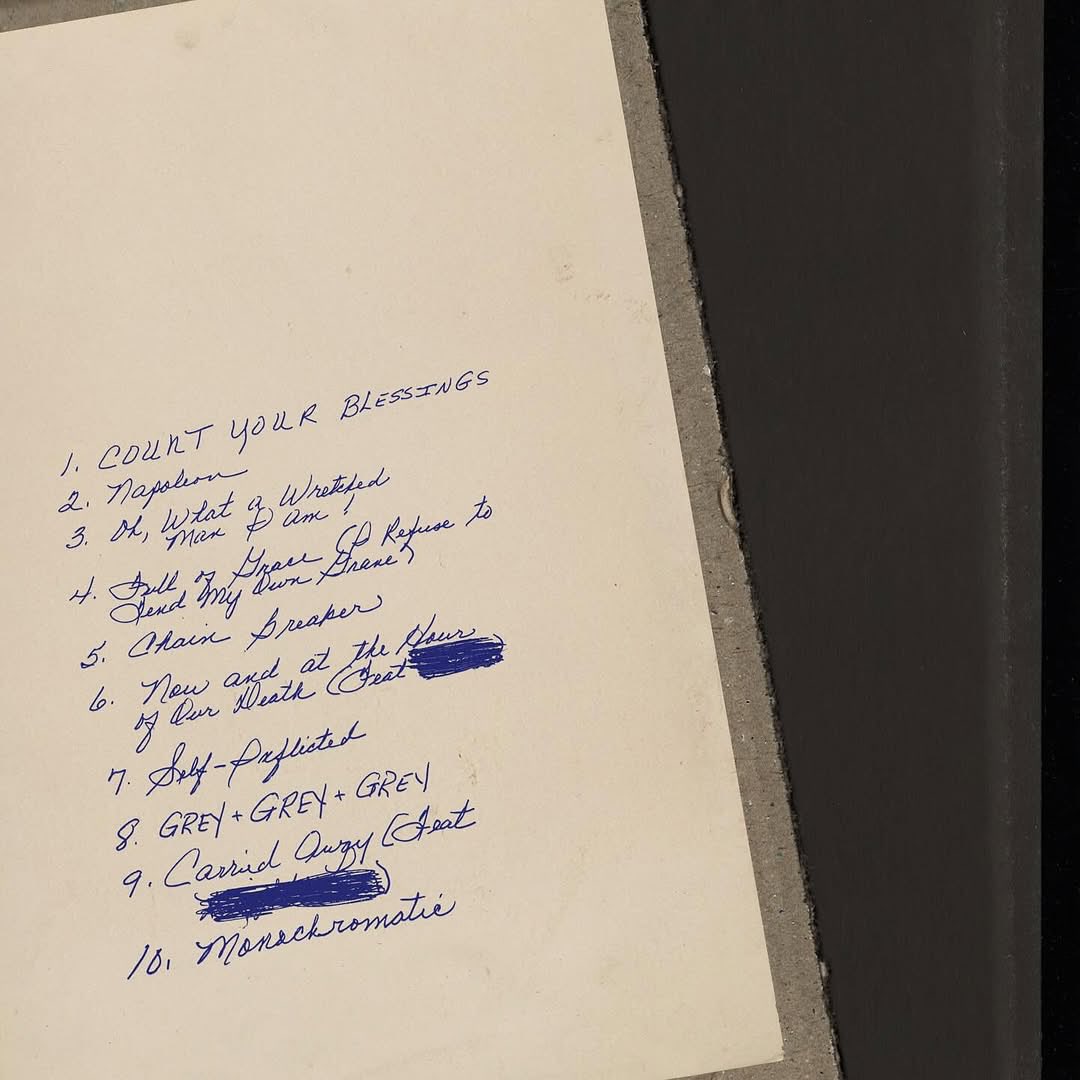 1. COUNT YOUR BLESSINGS
2. Napoleon
3. Oh, What a Wretched
Man I am!
4. Full of Grace (I Refuse to
Tend My Own Grave)
5. Chain Breaker
6. Now and at the Hour
of Our Death (Feat )
7. Self-Inflicted
8. GREY + GREY + GREY
9. Carried Away (Feat
)
10. Monochromatic